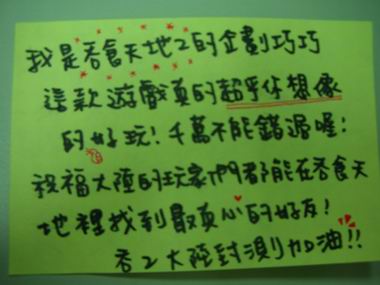 我是吞食天地2的企劃巧巧
這款遊戲真的超乎你想像
的好玩!千萬不能錯過喔!
祝福大陸的玩家們都能在吞食天
地裡找到最真心的好友!
吞2大陸封測加油!!